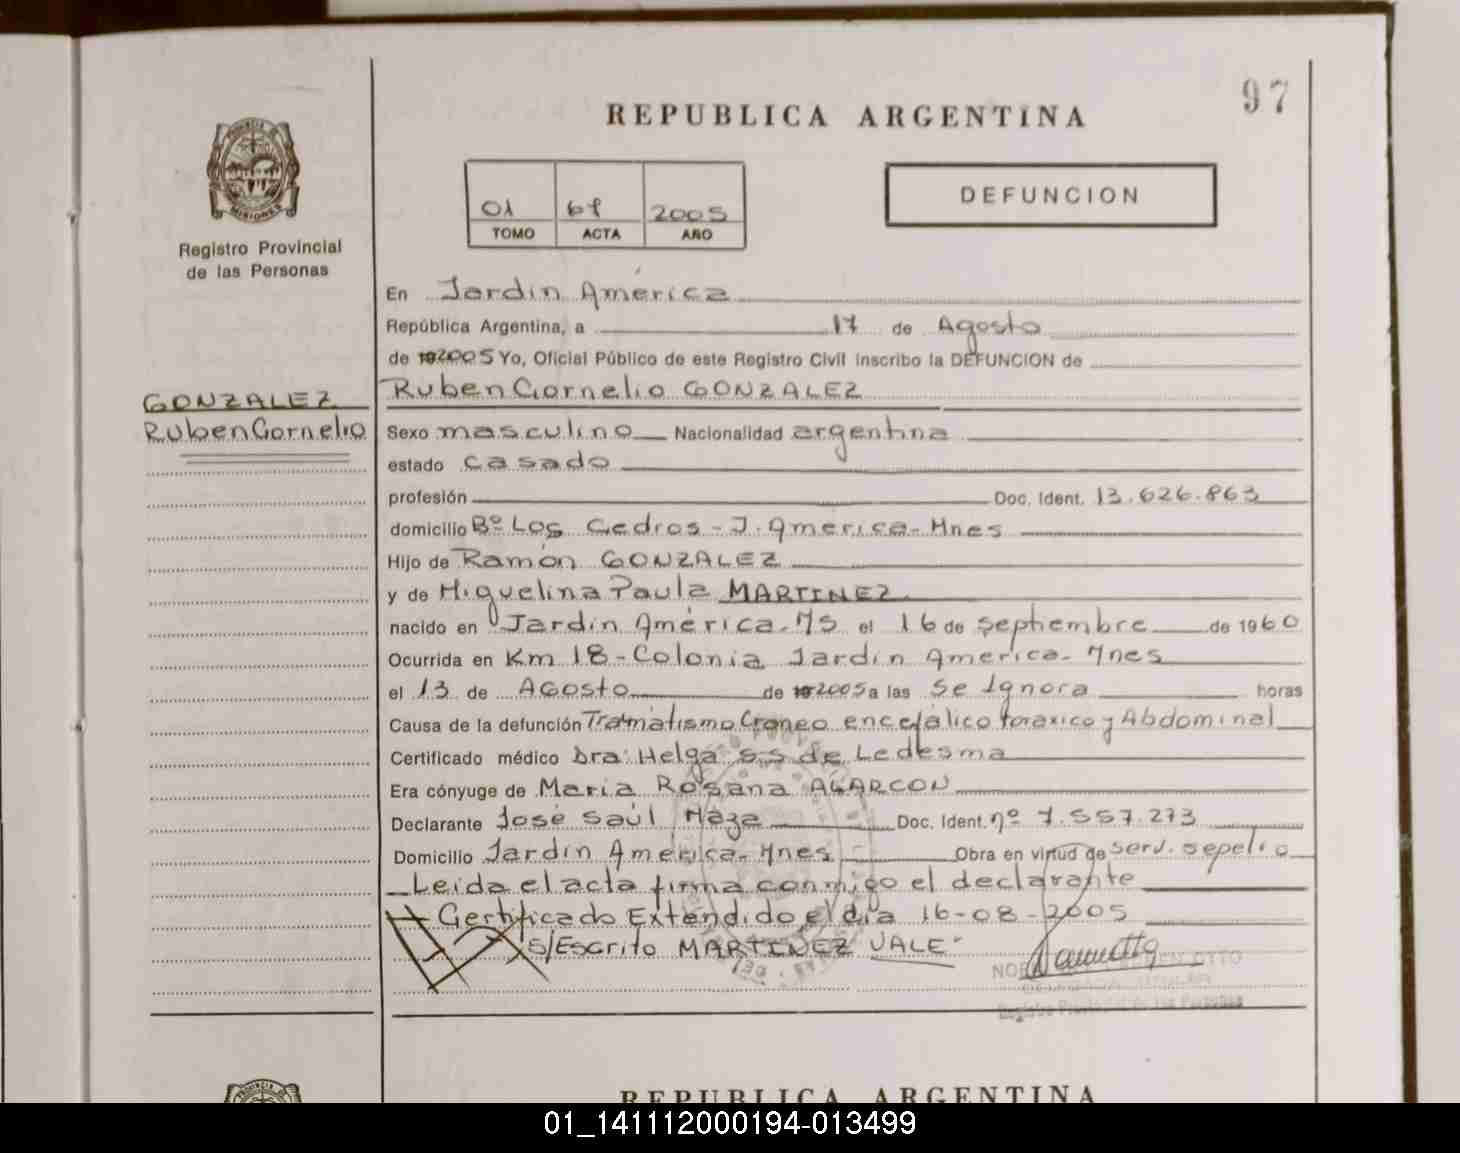 97
REPUBLICA ARGENTINA
PROVINCIA DE
MISIONES
Registro Provincial
de las Personas
01 67 2005
TOMO ACTA AÑO
DEFUNCION
En Jardín América
República Argentina, a 17 de Agosto
de 2005 Yo, Oficial Público de este Registro Civil inscribo la DEFUNCION de
GONZALEZ
Ruben Cornelio
Ruben Cornelio GONZALEZ
Sexo masculino Nacionalidad argentina
estado casado
profesión Doc. Ident. 13.626.863
domicilio Bº Los Cedros - J. America - Mnes
Hijo de Ramón GONZALEZ
y de Miguelina Paula MARTINEZ
nacido en Jardín América - Ms el 16 de septiembre de 1960
Ocurrida en Km 18 - Colonia Jardín America - Mnes
el 13 de Agosto de 2005 a las se Ignora horas
Causa de la defunción Tramatismo Craneo encefálico toraxico y Abdominal
Certificado médico Dra: Helga S.S de Ledesma
Era cónyuge de Maria Rosana ALARCON
Declarante José Saúl Maza Doc. Ident. nº 7.557.273
Domicilio Jardín América - Mnes Obra en virtud de serv. sepelio
Leída el acta firma conmigo el declarante
Certificado Extendido el día 16-08-2005
S/Escrito MARTINEZ VALE
OTTO
Registro Provincial de las Personas
REPUBLICA ARGENTINA
01_141112000194-013499